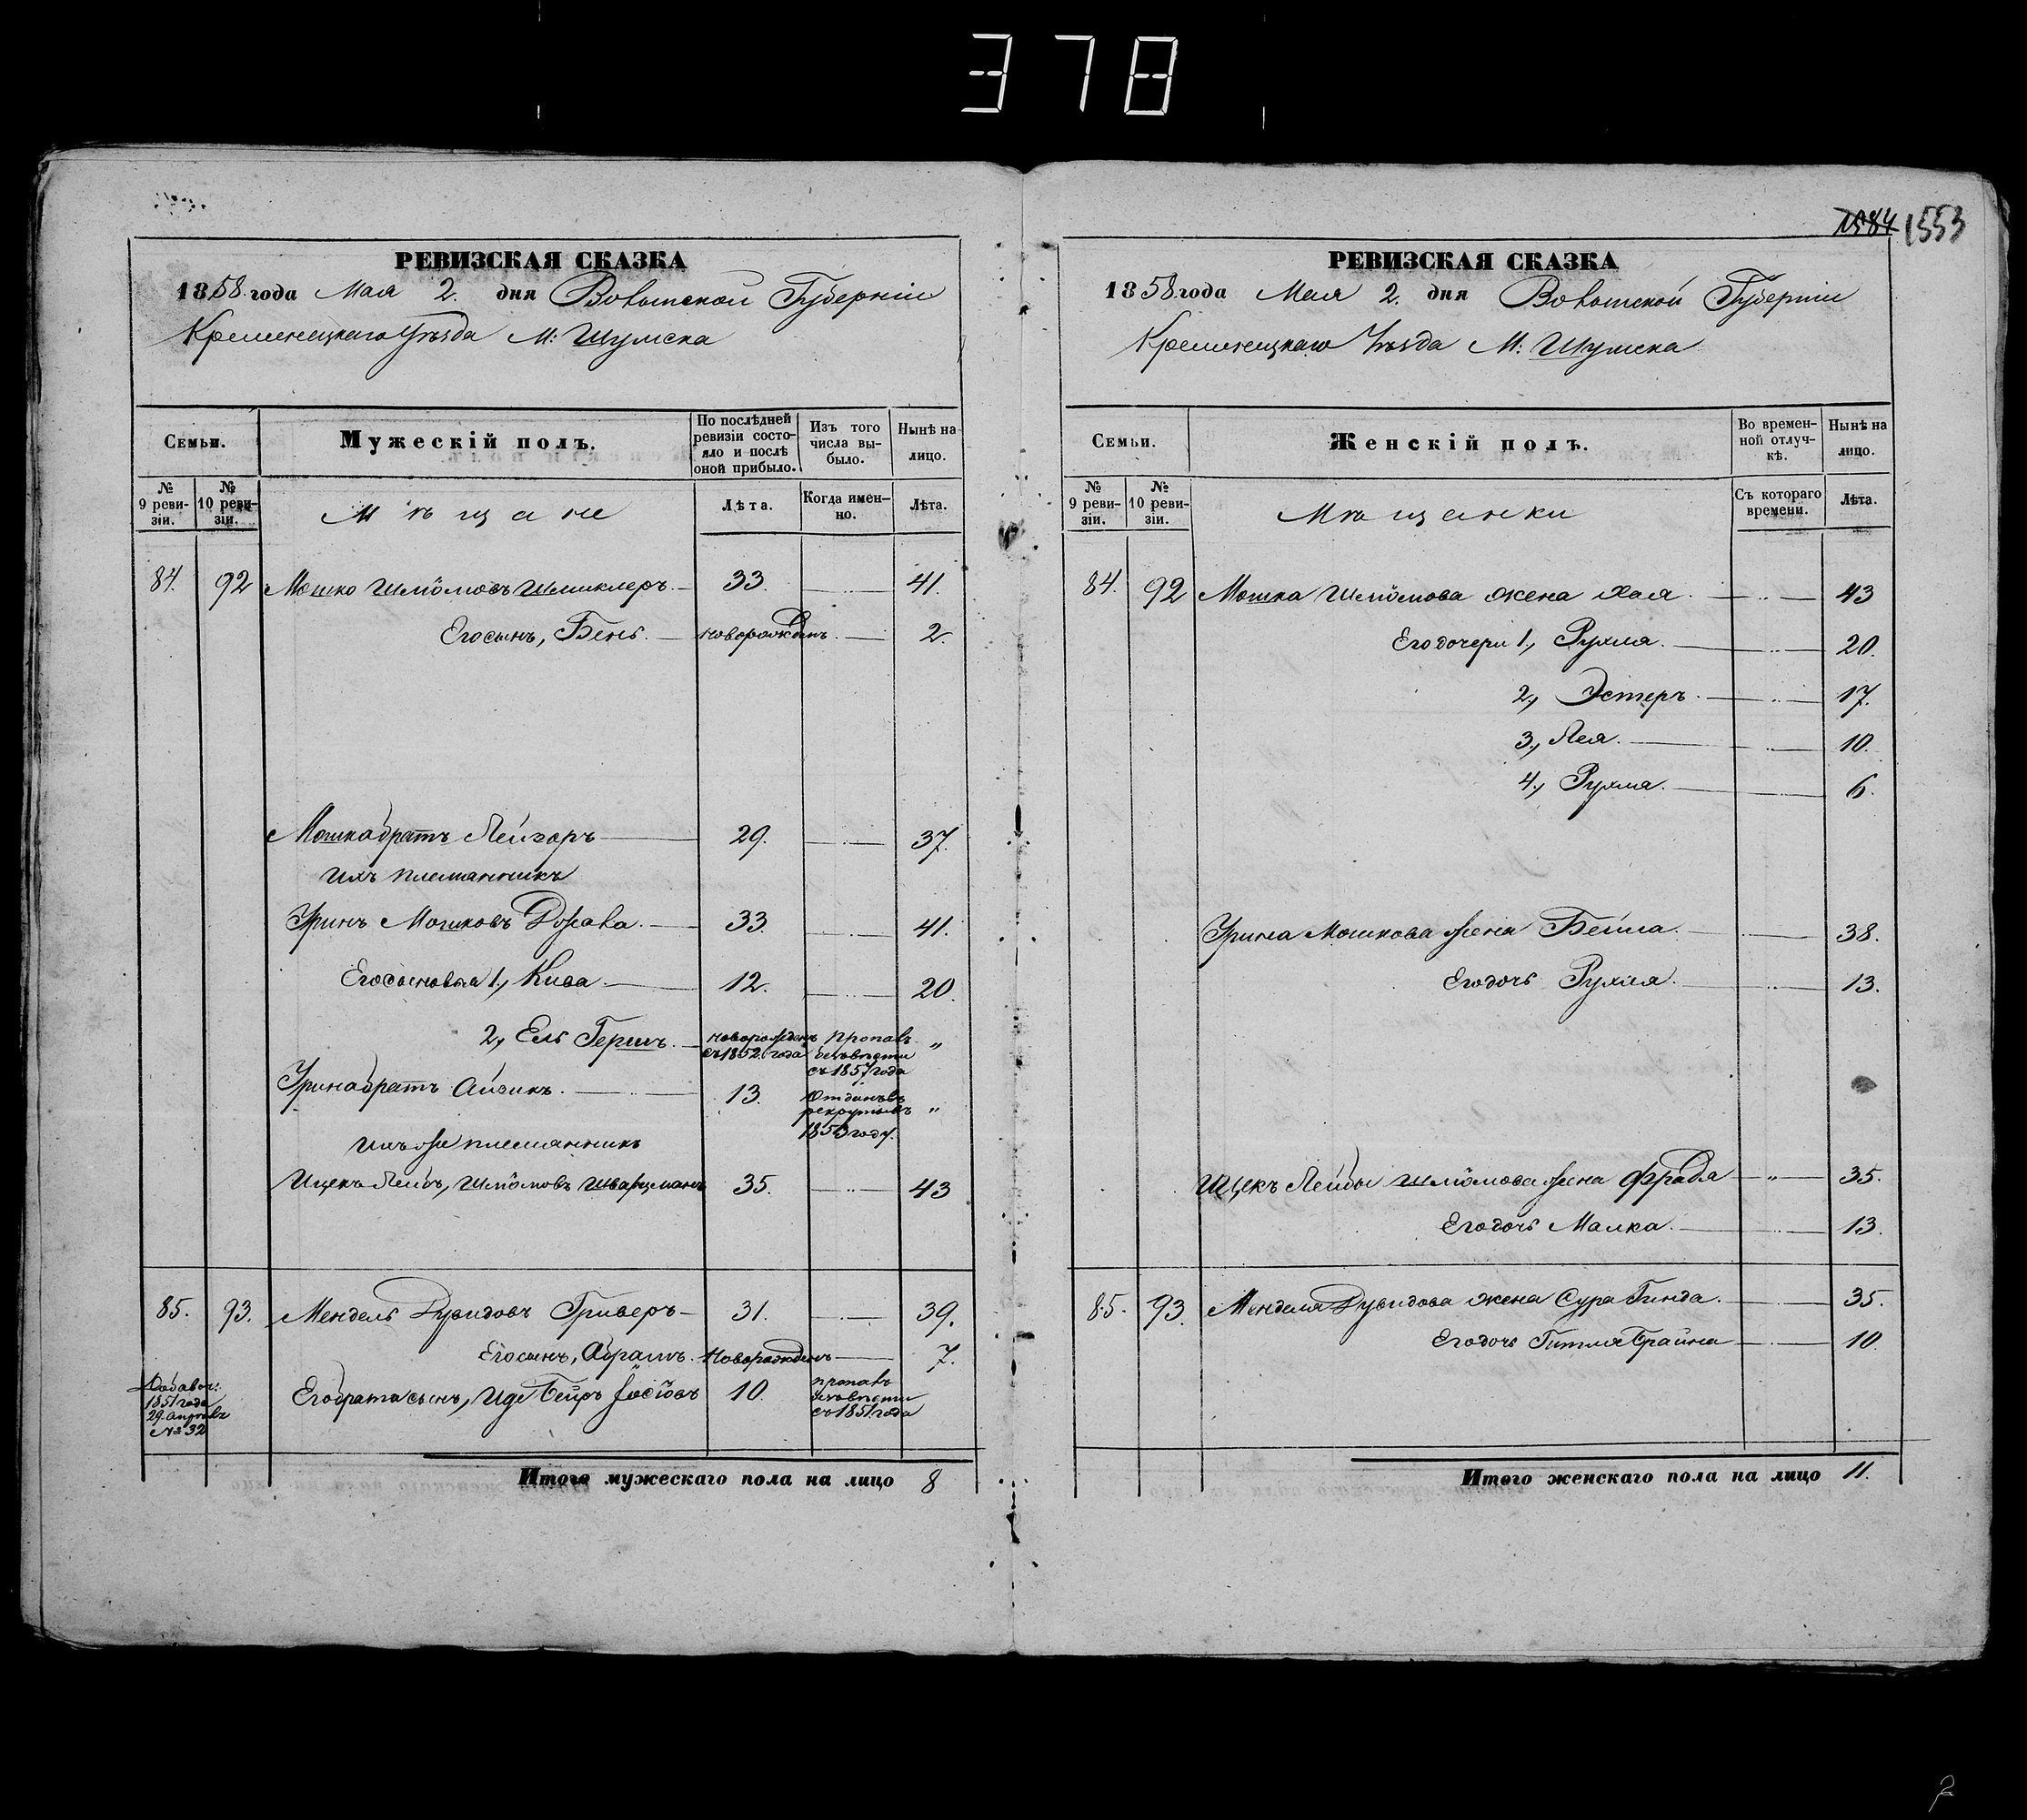 378
1584 1553
РЕВИЗСКАЯ СКАЗКА
1858 года Мая 2. дня Волынской Губерніи
Кременецкаго Уѣзда М: Шумска
Семьи.
Мужескій полъ.
По послѣдней ревизіи состояло и послѣ оной прибыло.
Изъ того числа выбыло.
Нынѣ на лицо.
№ 9 ревизіи.
№ 10 ревизіи.
Мѣщане
Лѣта.
Когда именно.
Лѣта.
84. 92 Мошко Шлiомовъ Шпиклеръ 33. 41.
Его сынъ, Бень. новорожденъ. 2.
Мошка братъ Лейзоръ 29. 37.
Ихъ племянникъ
Сринъ Мошковъ 33. 41.
Его сыновья 1., Кива 12. 20.
2., Ель Гершъ. новорожденъ съ 1852. года пропавъ безъ вѣсти съ 1857 года "
Срина братъ Айзикъ. 13. Отданъ въ рекруты въ 1853 году. "
Ихъ же племянникъ
Ицекъ Лейбъ, Шлiомовъ Шварцманъ 35. 43
85. 93. Мендель Дувидовъ Гриверъ 31. 39.
Его сынъ, Абрамъ. новорожденъ 7.
Добавоч: 1851 года 29 Апрѣля № 32
Его брата сынъ, Иде Бейръ Iосiовъ 10. пропавъ безъ вѣсти съ 1851. года
Итого мужескаго пола на лицо 8
РЕВИЗСКАЯ СКАЗКА
1858 года Мая 2. дня Волынской Губерніи
Кременецкаго Уѣзда М: Шумска
Семьи.
Женскій полъ.
Во временной отлучкѣ.
Нынѣ на лицо.
№ 9 ревизіи.
№ 10 ревизіи.
Мѣщанки
Съ котораго времени.
Лѣта.
84. 92 Мошка Шлiомова жена Хая. 43
Его дочери 1., Рухля. 20.
2., Эстеръ. 17.
3., Лея. 10.
4., Рухля. 6.
Срина Мошкова жена Бейла. 38.
Его дочь Рухля. 13.
Ицекъ Лейбы Шлiомова жена Фрада 35.
Его дочь Малка. 13.
85. 93. Менделя Дувидова жена Сура Гинда. 35.
Его дочь Гитля Брайна 10.
Итого женскаго пола на лицо 11.